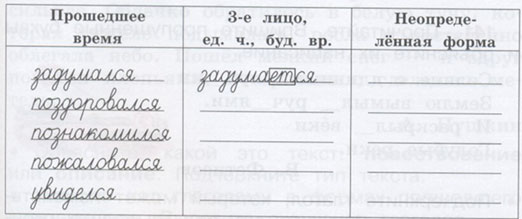 Прошедшее время
3-е лицо, ед. ч., буд. вр.
Неопреде-лённая форма
задумался задумается
поздоровался
познакомился
пожаловался
увиделся